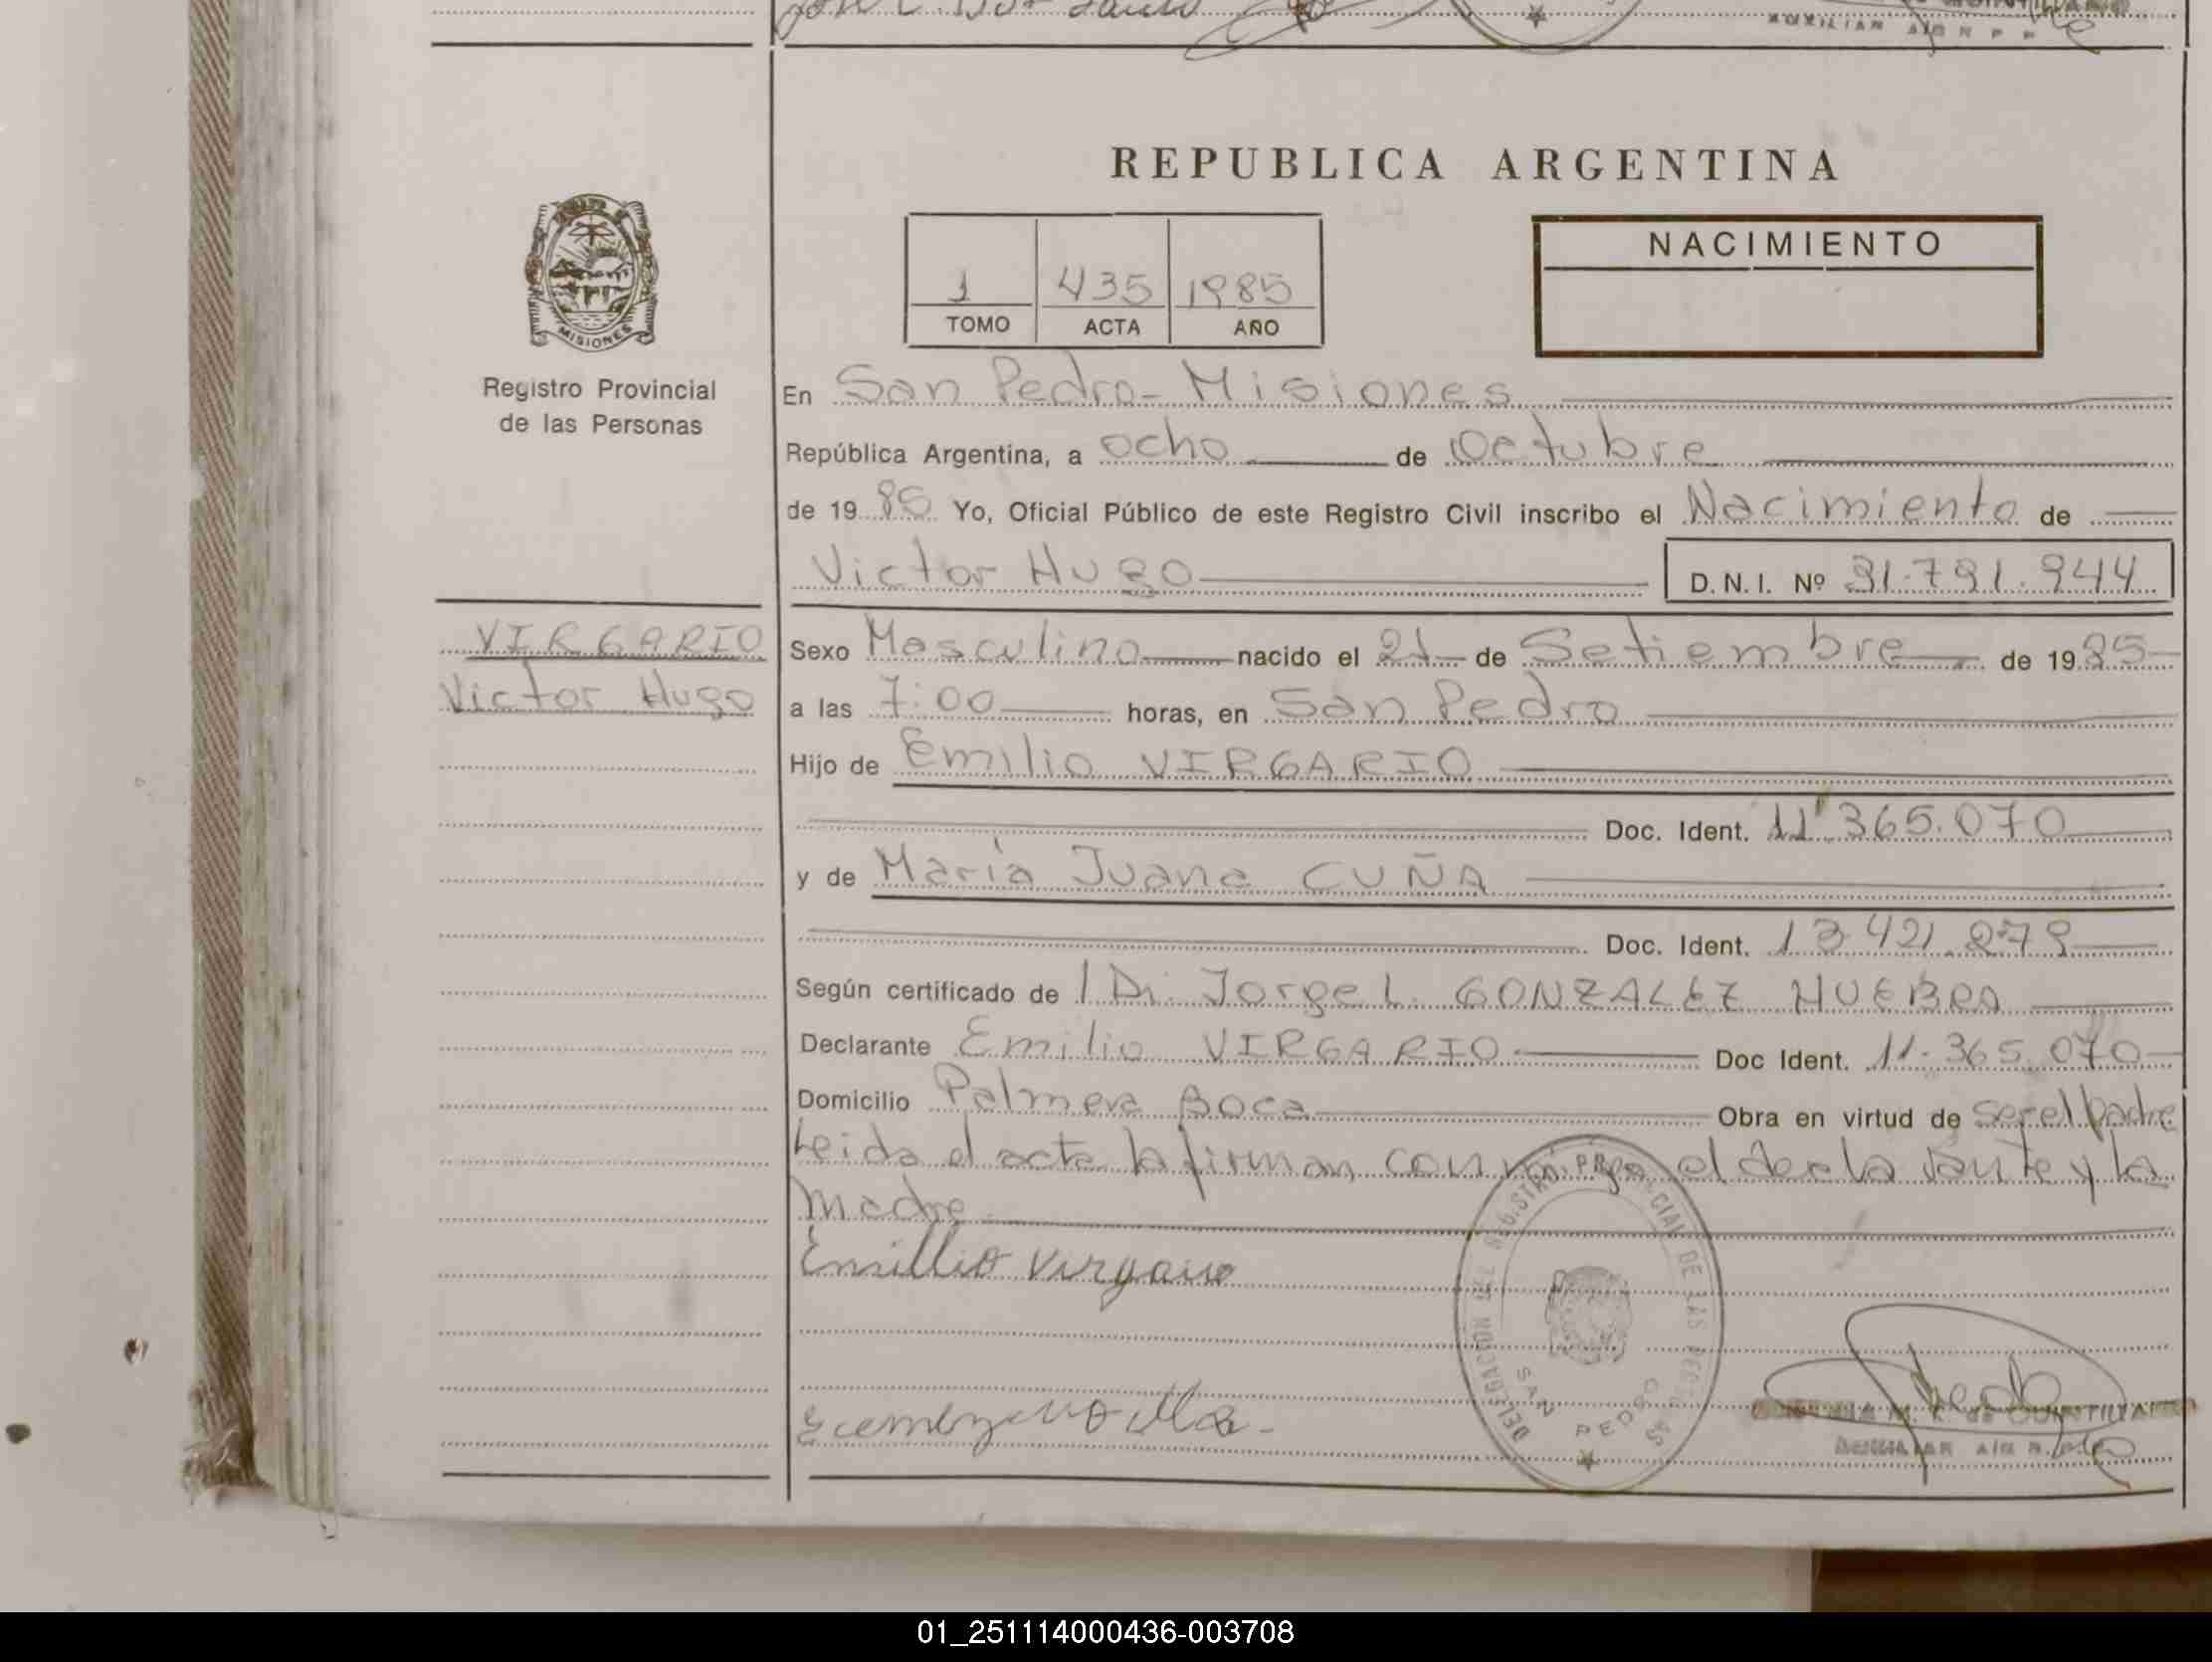 REPUBLICA ARGENTINA
NACIMIENTO
1 435 1985
TOMO ACTA AÑO
MISIONES
Registro Provincial
de las Personas
En San Pedro - Misiones
República Argentina, a ocho de Octubre
de 19 85 Yo, Oficial Público de este Registro Civil inscribo el Nacimiento de
Victor Hugo D.N.I. Nº 31.791.944
VIRGARIO
Victor Hugo
Sexo Masculino nacido el 21 de Setiembre de 19 85
a las 7:00 horas, en San Pedro
Hijo de Emilio VIRGARIO
Doc. Ident. 11.365.070
y de María Juana CUÑA
Doc. Ident. 13.421.279
Según certificado de Jorge L. GONZALEZ HUEBRA
Declarante Emilio VIRGARIO Doc Ident. 11.365.070
Domicilio Palmera Boca Obra en virtud de ser el padre
Leida el acta la firman, conmigo el declarante y la
Madre
Emillio Virgario
DELEGACION DEL REGISTRO PROVINCIAL DE LAS PERSONAS
SAN PEDRO
AUXILIAR
01_251114000436-003708